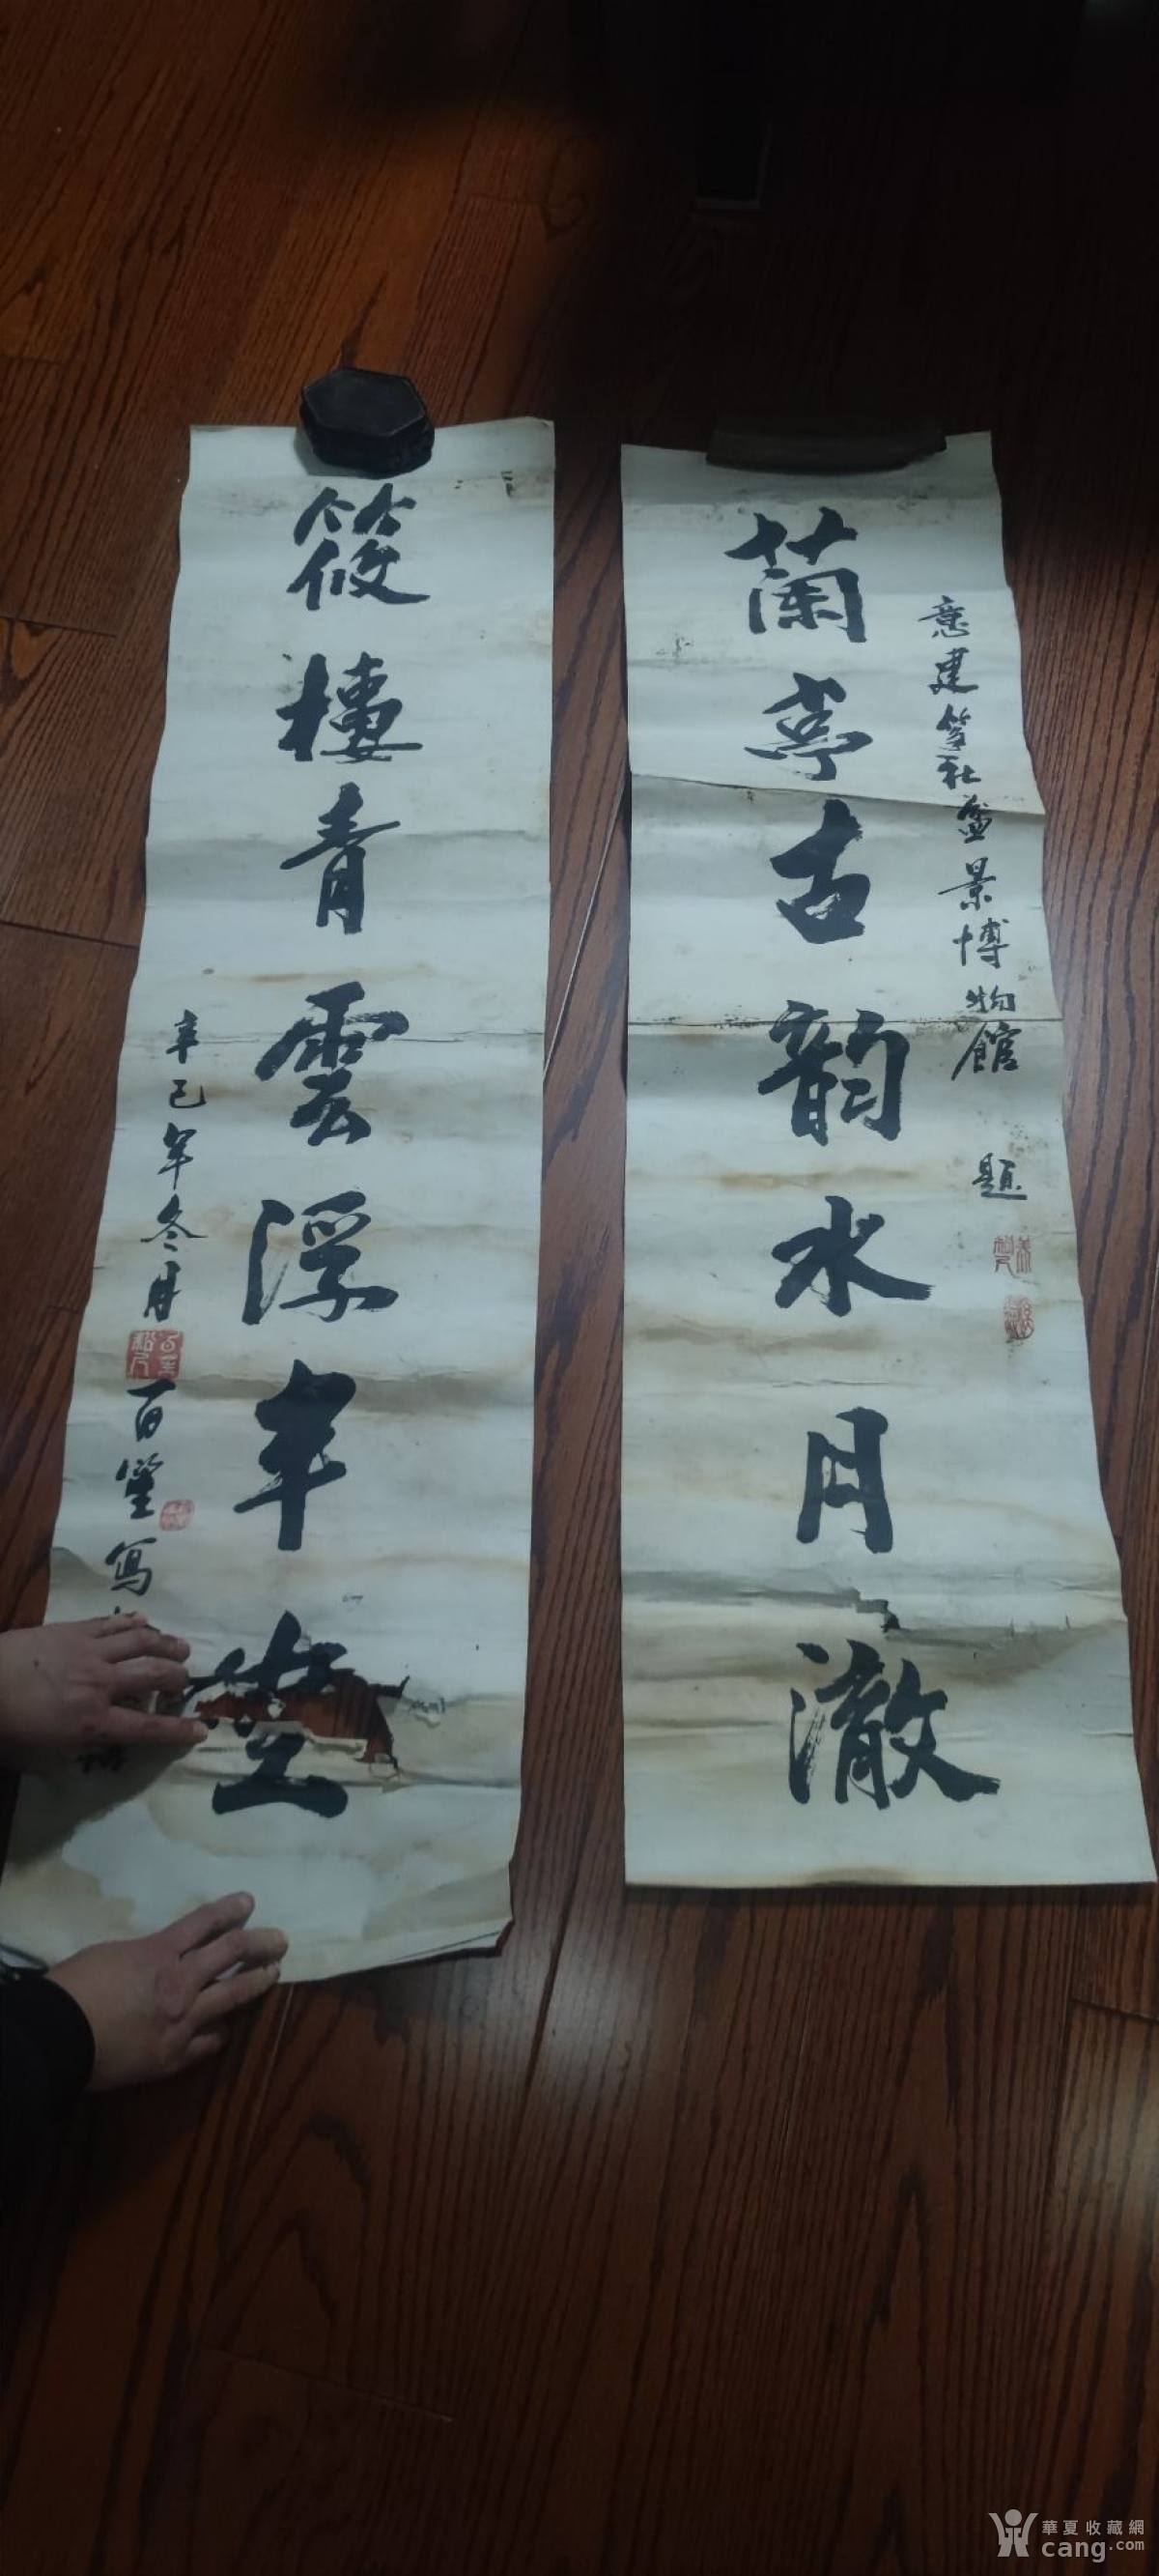 意建筑社盆景博物館 題
蘭亭古韵水月澈
筱樓青雲浮半
辛巳年冬月百 寫
華夏收藏網
cang.com